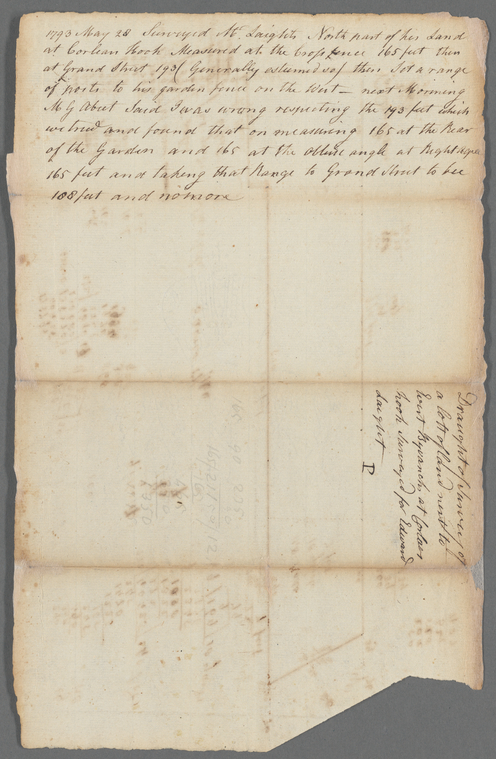 1793 May 28 Surveyed Mr. Laights North part of his Land
at Corlean Hook Measured at the Cross fence 165 feet then
at Grand Street 193 (Generally esteemed so) then Sot a range
of ports to his garden fence on the West – next Morning
M G Abeet Said I was wrong respecting the 193 feet which
we tried and found that on measuring 165 at the Rear
of the Garden and 165 at the obtuse angle at Right angles
165 feet and taking that Range to Grand Street to bee
188 feet and no more
Draught of Survey of
a lott of land next to
Evert Byvanck at Corlaers
hook Surveyed for Edward
Laight
P